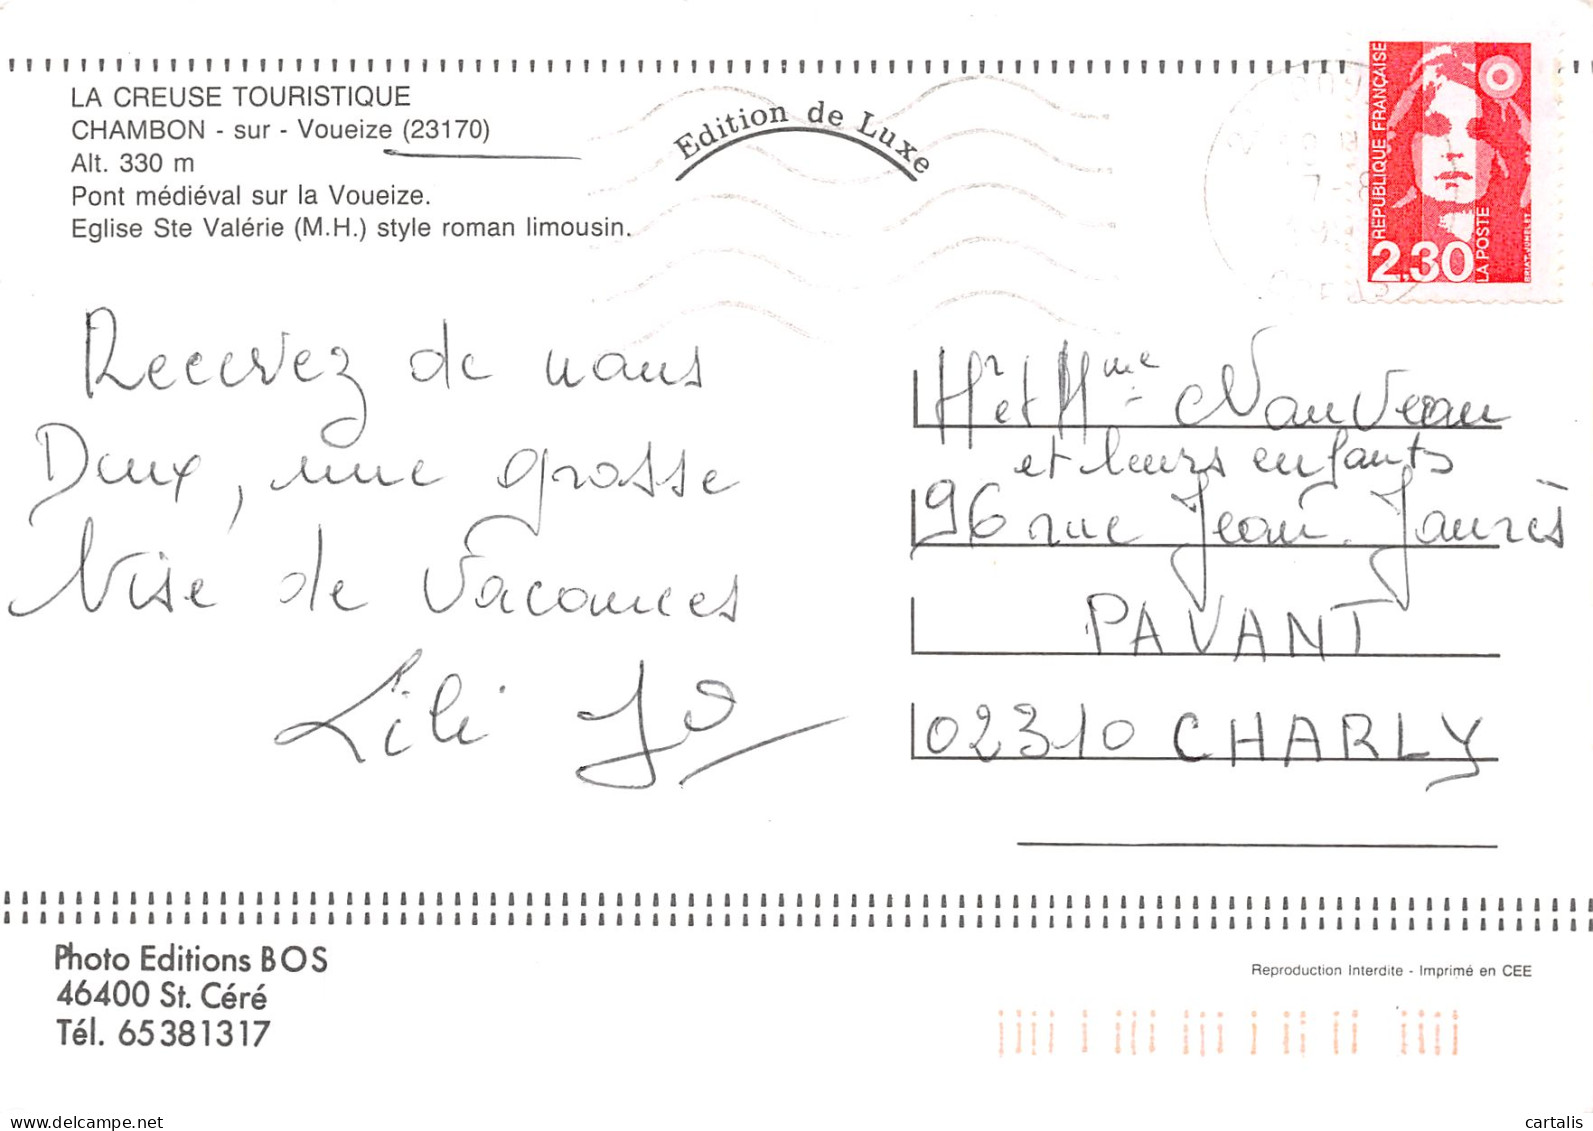 LA CREUSE TOURISTIQUE
CHAMBON - sur - Voueize (23170)
Alt. 330 m
Pont médiéval sur la Voueize.
Eglise Ste Valérie (M.H.) style roman limousin.
Edition de Luxe
REPUBLIQUE FRANÇAISE
2,30
LA POSTE
BRIAT-JUMELET
7-8
Recevez de nous
Deux, une grosse
Bise de Vacances
Lili Jo
Mr et Mme Nauveau
et leurs enfants
96 rue Jean Jaurès
PAVANT
02310 CHARLY
Photo Editions BOS
46400 St. Céré
Tél. 65381317
Reproduction Interdite - Imprimé en CEE
myphilbook.com
delcampe.net